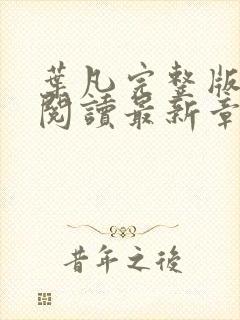 葉凡完整版
閱讀最新章
昔年之後